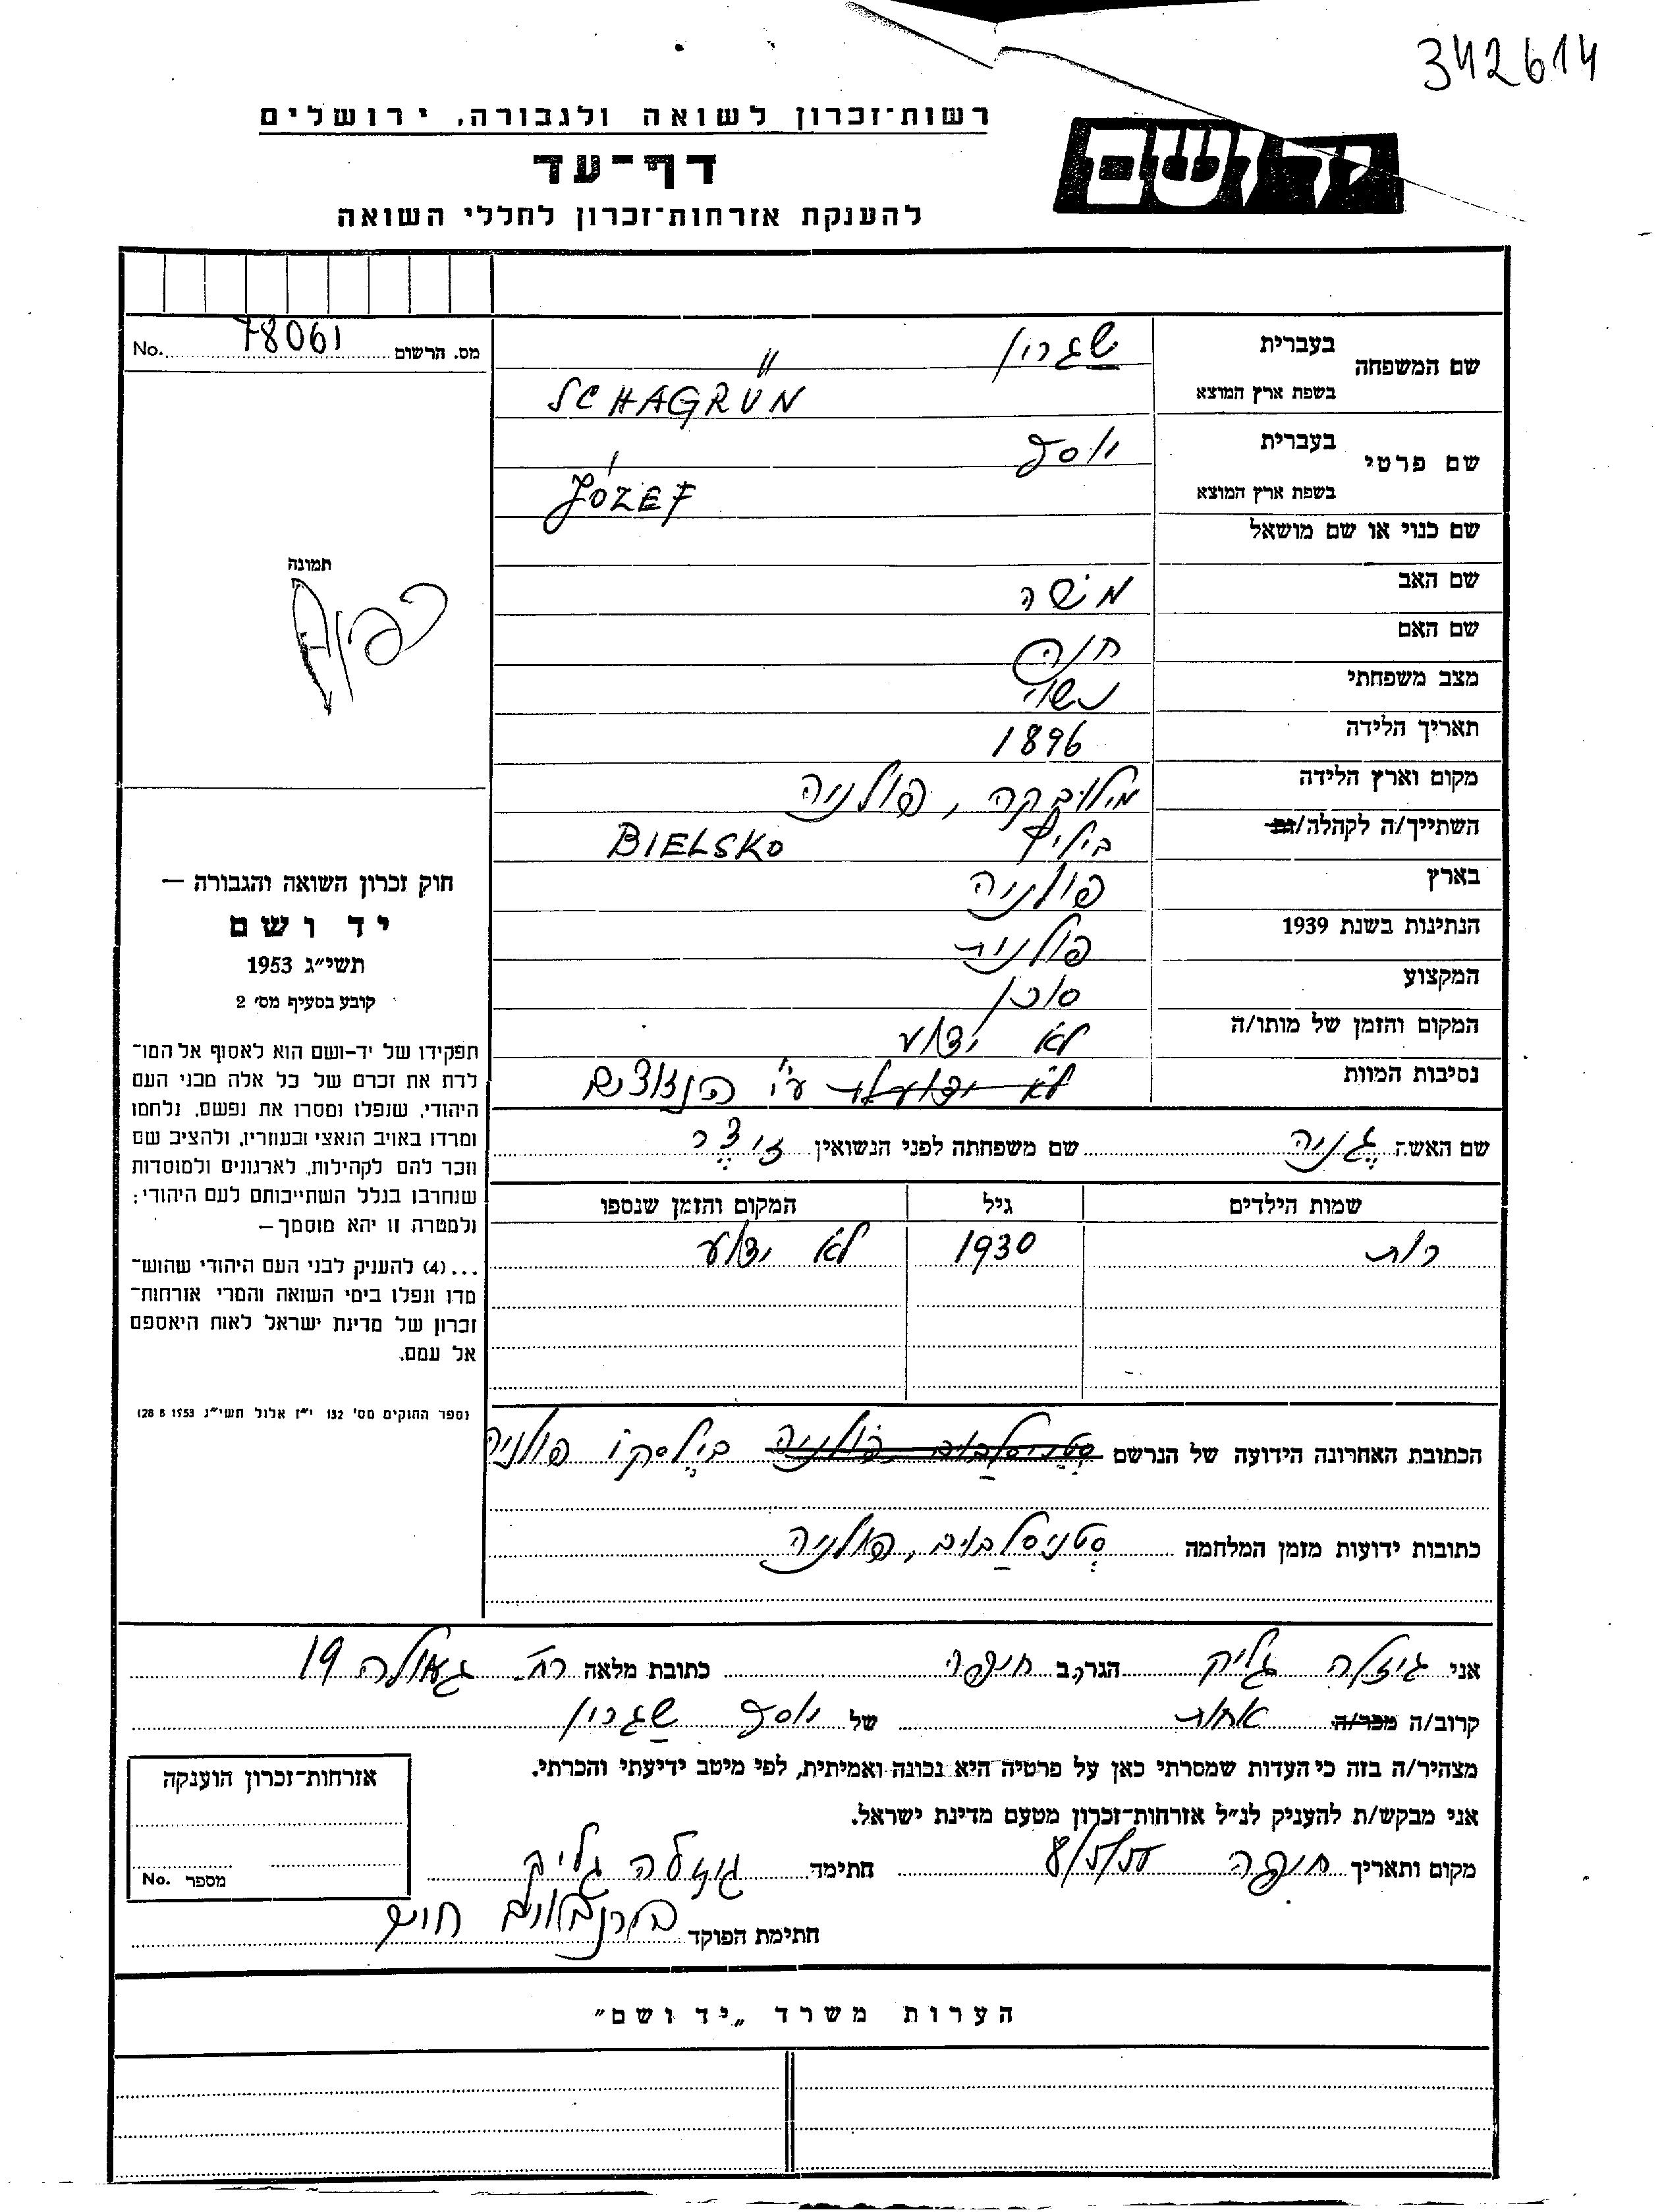 342614
רשות־זכרון לשואה ולגבורה, ירושלים
יד ושם
דף־עד
להענקת אזרחות־זכרון לחללי השואה
מס. הרשום 78061 No.
שם המשפחה
בעברית שגרין
בשפת ארץ המוצא SCHAGRÜN
שם פרטי
בעברית יוסף
בשפת ארץ המוצא JÓZEF
שם כנוי או שם מושאל
שם האב משה
שם האם חנה
מצב משפחתי נשוי
תאריך הלידה 1896
מקום וארץ הלידה מילובקה, פולניה
השתייך/ה לקהלה/ות ביליץ BIELSKO
בארץ פולניה
הנתינות בשנת 1939 פולנית
המקצוע סוכן
המקום והזמן של מותו/ה לא ידוע
נסיבות המוות לא ע"י הנאצים
שם האשה גניה שם משפחתה לפני הנשואין
שמות הילדים גיל המקום והזמן שנספו
רות 1930 לא ידוע
הכתובת האחרונה הידועה של הנרשם סטניסלבוב פולניה בילסקו פולניה
כתובות ידועות מזמן המלחמה סטניסלבוב, פולניה
תמונה
חוק זכרון השואה והגבורה —
יד ושם
תשי״ג 1953
קובע בסעיף מס׳ 2
תפקידו של יד-ושם הוא לאסוף אל המו־
לדת את זכרם של כל אלה מבני העם
היהודי, שנפלו ומסרו את נפשם, נלחמו
ומרדו באויב הנאצי ובעוזריו, ולהציב שם
וזכר להם לקהילות, לארגונים ולמוסדות
שנחרבו בגלל השתייכותם לעם היהודי;
ולמטרה זו יהא מוסמך—
...(4) להעניק לבני העם היהודי שהוש־
מדו ונפלו בימי השואה והמרי אזרחות־
זכרון של מדינת ישראל לאות היאספם
אל עמם.
(ספר החוקים מס׳ 132 י״ז אלול תשי״ג 28 8 1953)
אני גיזלה גליק הגר/ה ב חיפה כתובת מלאה רח' גאולה 19
קרוב/ה מכר/ה אחות של יוסף שגרין
מצהיר/ה בזה כי העדות שמסרתי כאן על פרטיה היא נכונה ואמיתית, לפי מיטב ידיעתי והכרתי.
אני מבקש/ת להעניק לנ״ל אזרחות־זכרון מטעם מדינת ישראל.
מקום ותאריך חיפה חתימה גיזלה גליק
חתימת הפוקד
אזרחות־זכרון הוענקה
מספר No.
הערות משרד „יד ושם"